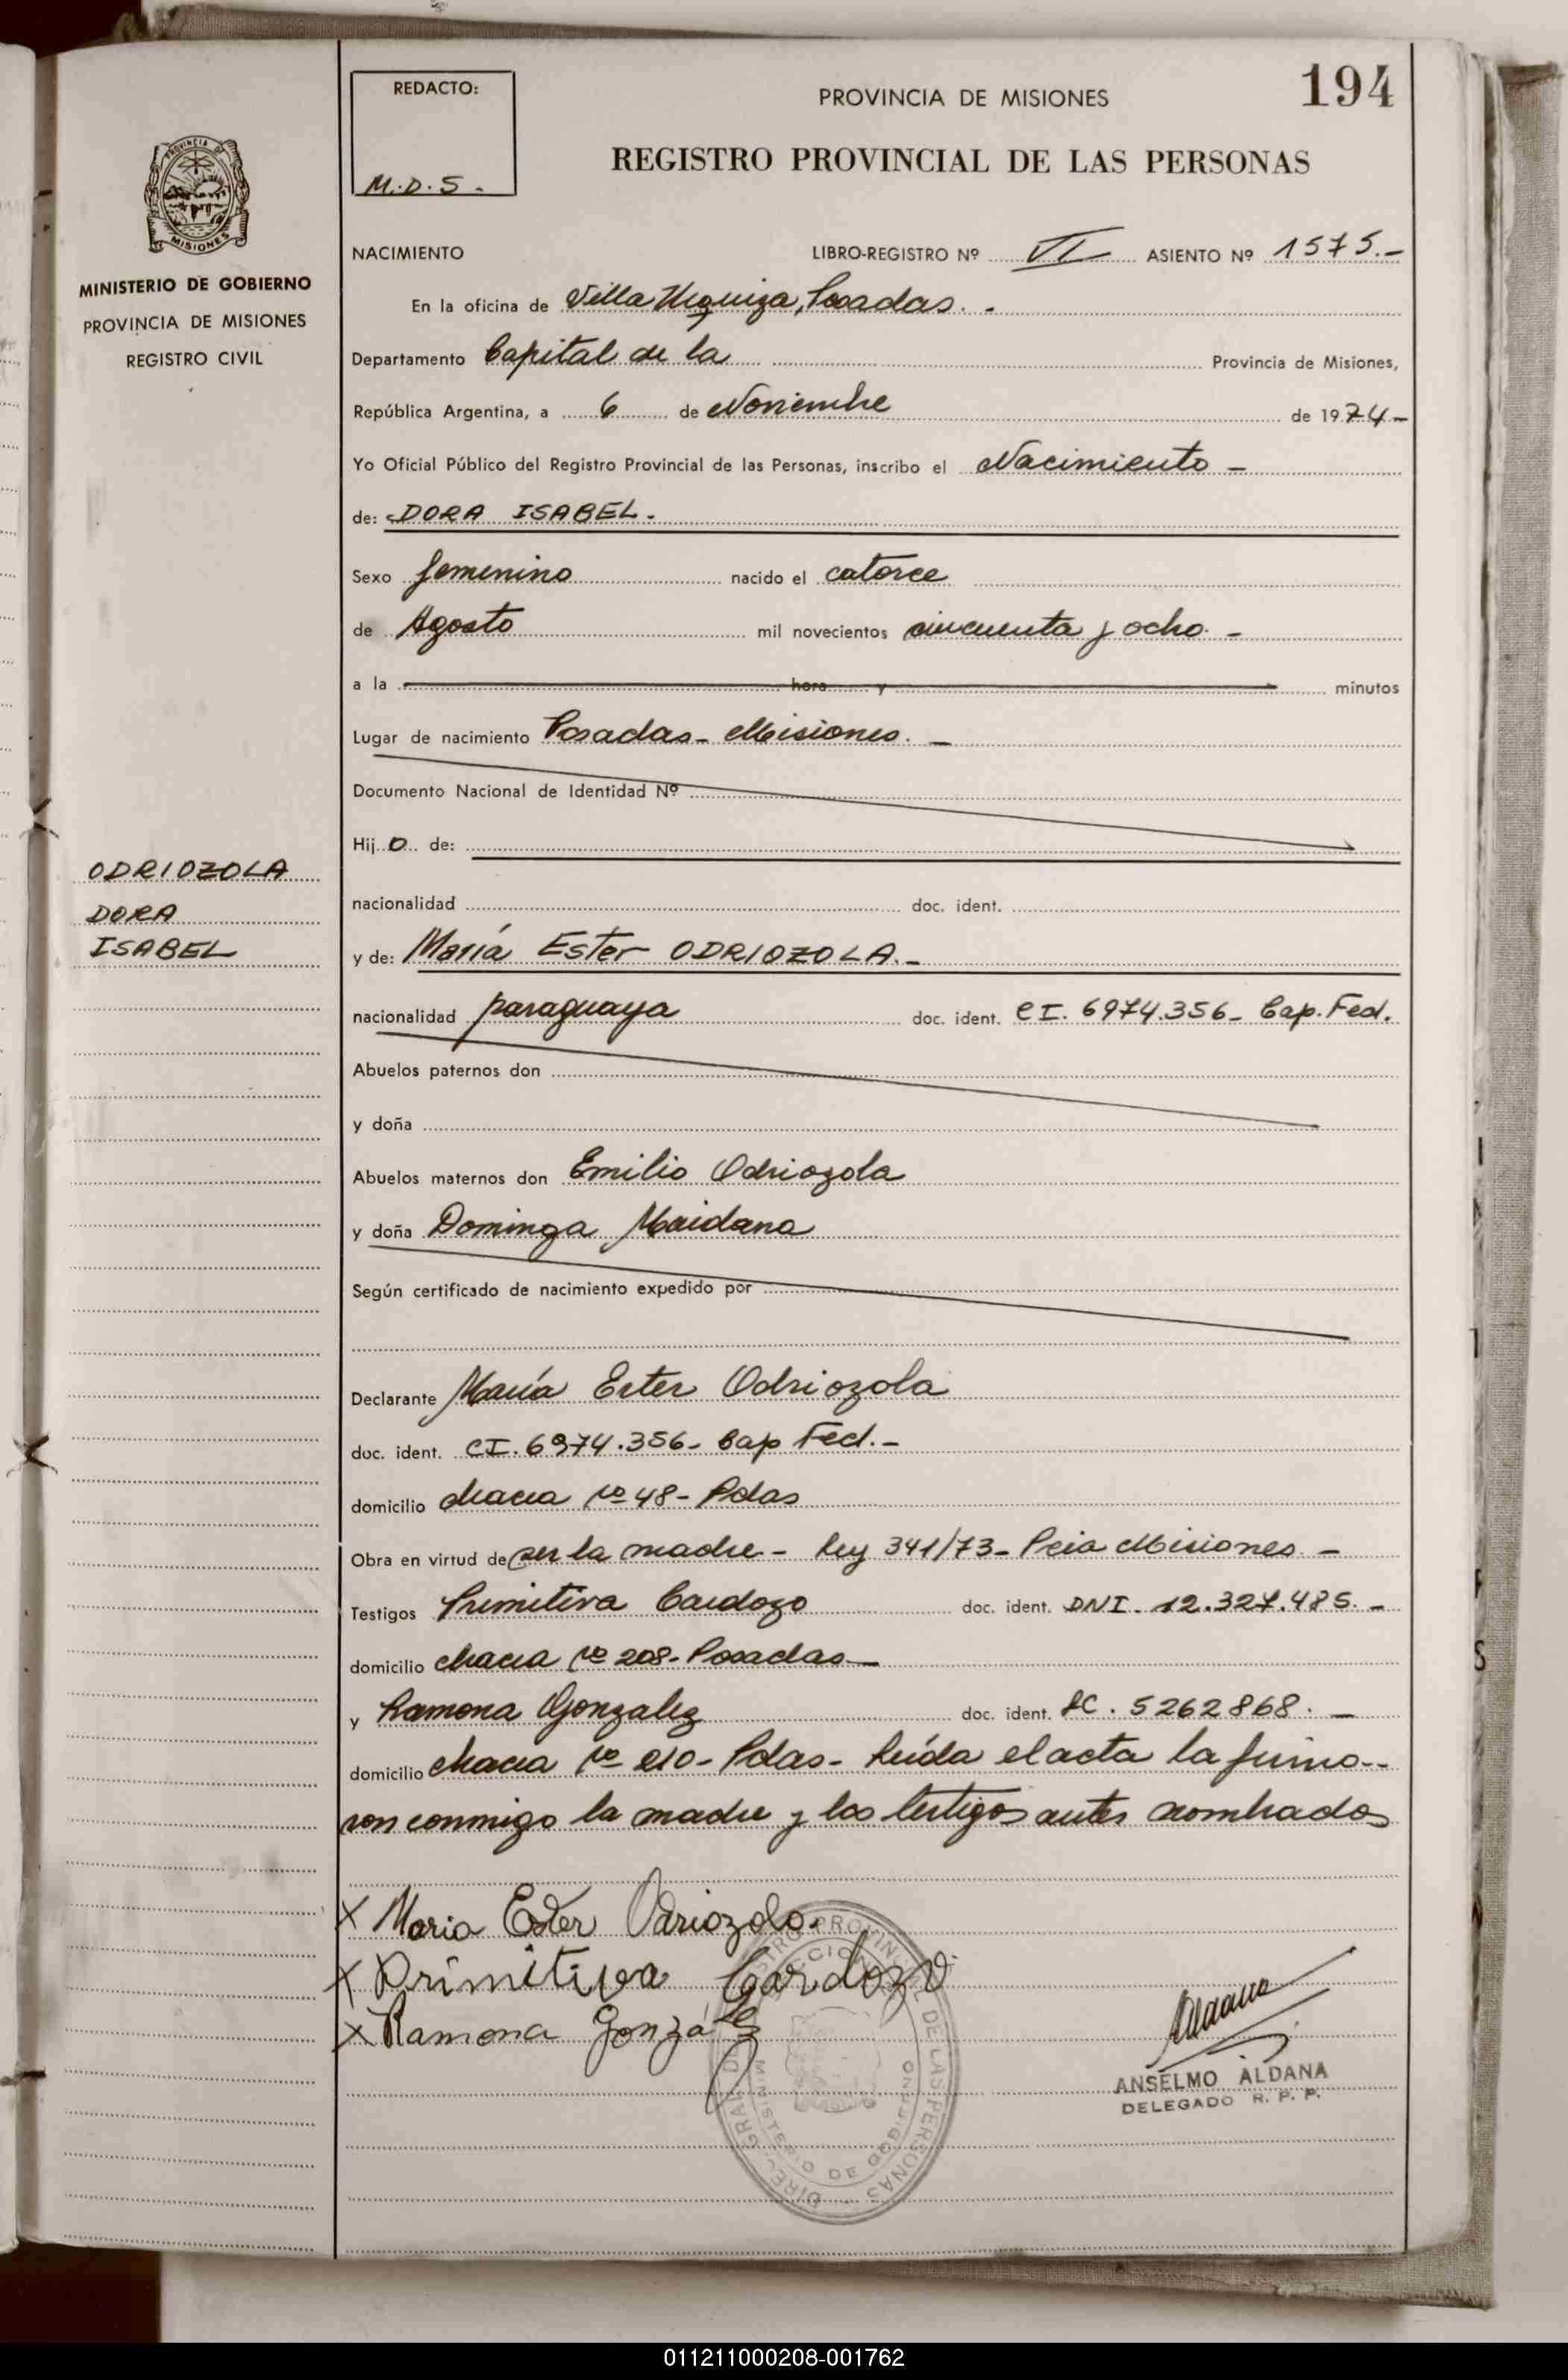 194
REDACTO:
M.D.S.-
PROVINCIA DE MISIONES
REGISTRO PROVINCIAL DE LAS PERSONAS
PROVINCIA DE
MISIONES
MINISTERIO DE GOBIERNO
PROVINCIA DE MISIONES
REGISTRO CIVIL
NACIMIENTO LIBRO-REGISTRO Nº VI ASIENTO Nº 1575.-
En la oficina de Villa Urquiza, Posadas. -
Departamento Capital de la Provincia de Misiones,
República Argentina, a 6 de Noviembre de 1974-
Yo Oficial Público del Registro Provincial de las Personas, inscribo el Nacimiento -
de: DORA ISABEL.
Sexo femenino nacido el catorce
de Agosto mil novecientos cincuenta y ocho. -
a la hora y minutos
Lugar de nacimiento Posadas - Misiones. -
Documento Nacional de Identidad Nº
Hij o de:
ODRIOZOLA
DORA
ISABEL
nacionalidad doc. ident.
y de: María Ester ODRIOZOLA.-
nacionalidad paraguaya doc. ident. CI. 6974.356- Cap. Fed.
Abuelos paternos don
y doña
Abuelos maternos don Emilio Odriozola
y doña Dominga Maidana
Según certificado de nacimiento expedido por
Declarante María Ester Odriozola
doc. ident. CI. 6974.356- Cap Fed.-
domicilio Chacra Nº 48- Pdas
Obra en virtud de ser la madre - Ley 341/73- Pcia Misiones -
Testigos Primitiva Cardozo doc. ident. DNI. 12.327.485. -
domicilio Chacra Nº 208- Posadas-
y Ramona Gonzalez doc. ident. LC. 5262868. -
domicilio Chacra Nº 210- Pdas- Leída el acta la firma--
ron conmigo la madre y los testigos antes nombrados
X Maria Ester Odriozola.
X Primitiva Cardozo
X Ramona Gonzál
DIREC. GRAL. DE REGISTRO PROVINCIAL DE LAS PERSONAS
MINISTERIO DE GOBIERNO
Aldana
ANSELMO ALDANA
DELEGADO R. P. P.
011211000208-001762